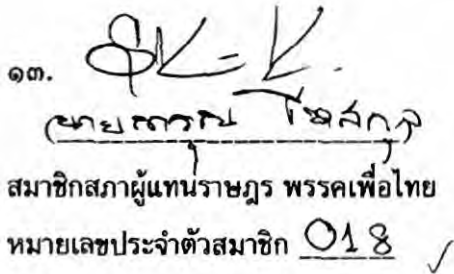 ๑๓.
(นายการุณ โหสกุล)
สมาชิกสภาผู้แทนราษฎร พรรคเพื่อไทย
หมายเลขประจำตัวสมาชิก 018 ✓